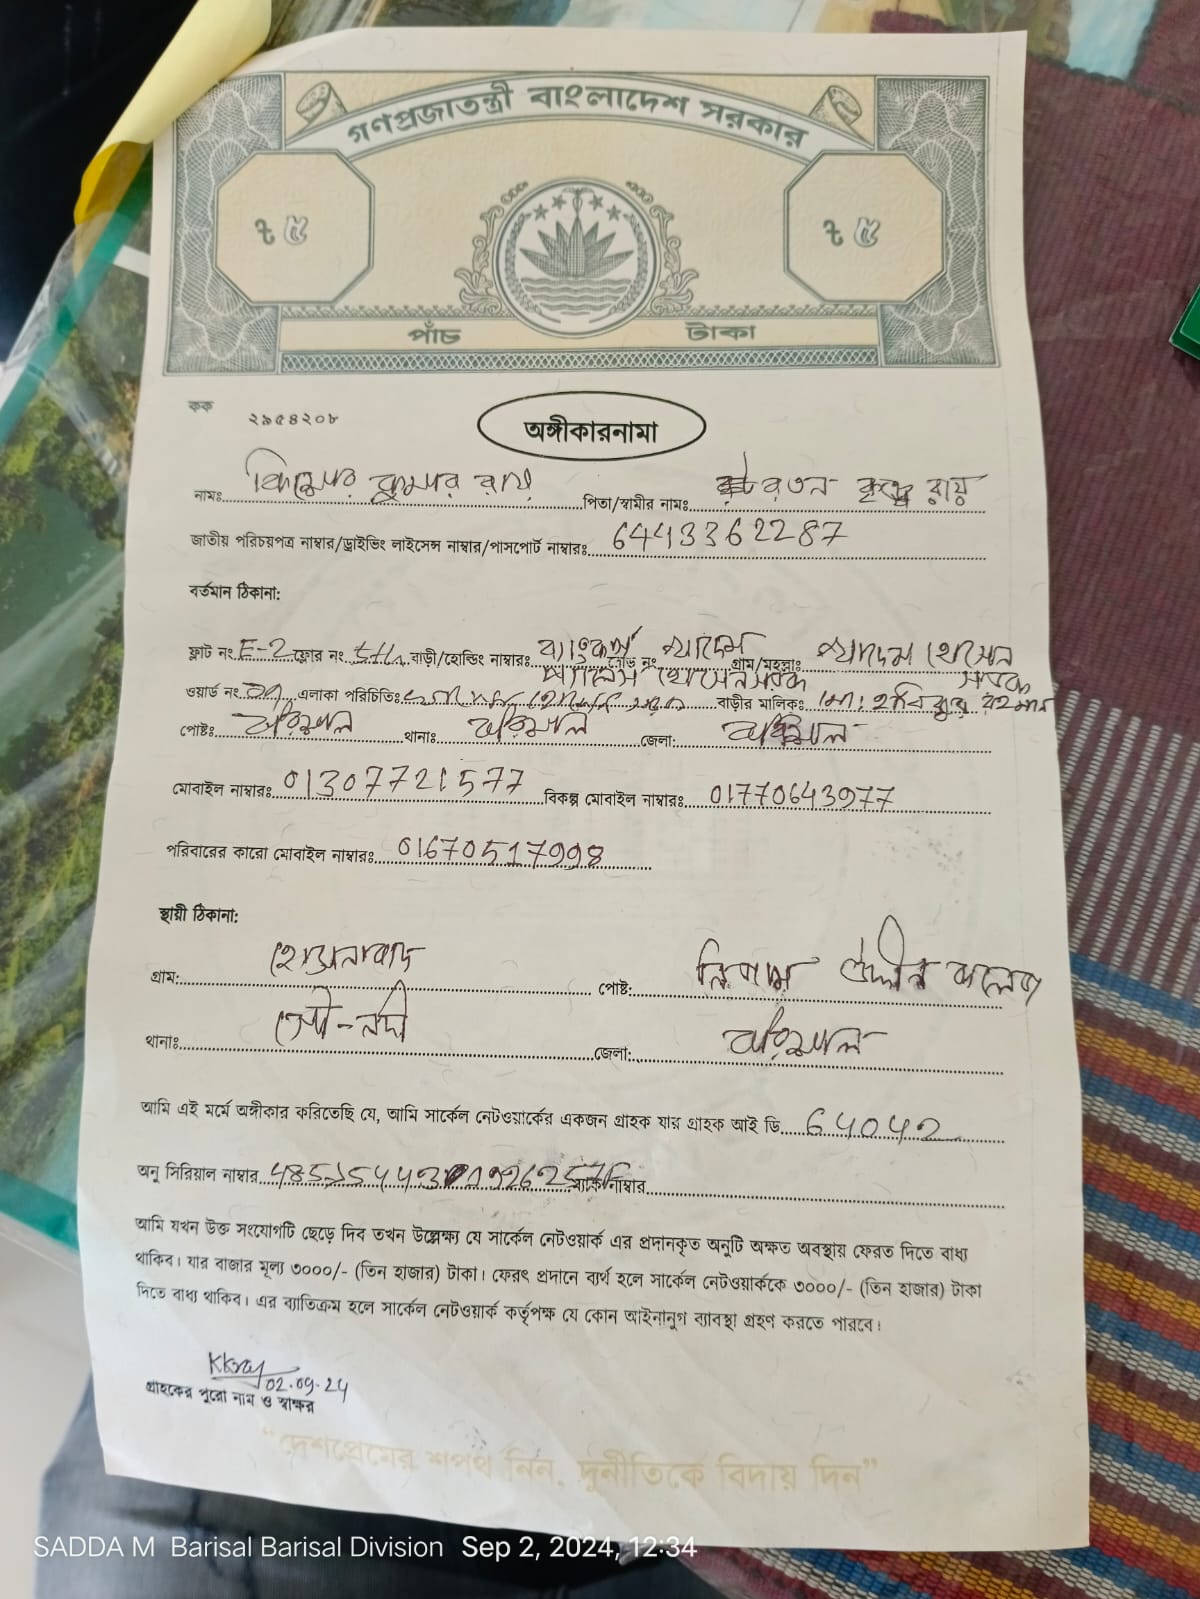 গণপ্রজাতন্ত্রী বাংলাদেশ সরকার
৳ ৫ ৳ ৫
পাঁচ টাকা
কক ২৯৫৪২০৮
অঙ্গীকারনামা
নামঃ কিশোর কুমার রায় পিতা/স্বামীর নামঃ রতন কৃষ্ণ রায়
জাতীয় পরিচয়পত্র নাম্বার/ড্রাইভিং লাইসেন্স নাম্বার/পাসপোর্ট নাম্বারঃ 6443362287
বর্তমান ঠিকানা:
ফ্লাট নং E-2 ফ্লোর নং 5th বাড়ী/হোল্ডিং নাম্বারঃ ব্যাংকার্স প্যালেস রোড নং গ্রাম/মহল্লাঃ
ওয়ার্ড নং এলাকা পরিচিতিঃ বাড়ীর মালিকঃ মোঃ হাবিবুর রহমান
পোষ্টঃ বরিশাল থানাঃ বরিশাল জেলা: বরিশাল
মোবাইল নাম্বারঃ 01307721577 বিকল্প মোবাইল নাম্বারঃ 01770643977
পরিবারের কারো মোবাইল নাম্বারঃ 01670517998
স্থায়ী ঠিকানা:
গ্রাম: হোসনাবাদ পোষ্ট: নিজাম উদ্দীন কলেজ
থানাঃ গৌরনদী জেলা: বরিশাল
আমি এই মর্মে অঙ্গীকার করিতেছি যে, আমি সার্কেল নেটওয়ার্কের একজন গ্রাহক যার গ্রাহক আই ডি 64042
অনু সিরিয়াল নাম্বার নাম্বার
আমি যখন উক্ত সংযোগটি ছেড়ে দিব তখন উল্লেক্ষ্য যে সার্কেল নেটওয়ার্ক এর প্রদানকৃত অনুটি অক্ষত অবস্থায় ফেরত দিতে বাধ্য
থাকিব। যার বাজার মূল্য ৩০০০/- (তিন হাজার) টাকা। ফেরৎ প্রদানে ব্যর্থ হলে সার্কেল নেটওয়ার্ককে ৩০০০/- (তিন হাজার) টাকা
দিতে বাধ্য থাকিব। এর ব্যাতিক্রম হলে সার্কেল নেটওয়ার্ক কর্তৃপক্ষ যে কোন আইনানুগ ব্যাবস্থা গ্রহণ করতে পারবে।
KKray
02.09.24
গ্রাহকের পুরো নাম ও স্বাক্ষর
“দেশপ্রেমের শপথ নিন, দুর্নীতিকে বিদায় দিন”
SADDA M Barisal Barisal Division Sep 2, 2024, 12:34